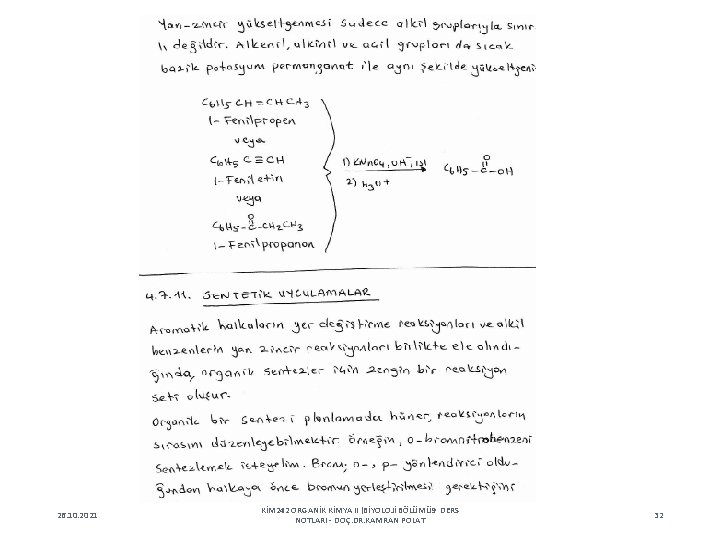 Yan-zincir yükseltgenmesi sudece alkil gruplarıyla sınır
lı değildir. Alkenil, alkinil ve açil grupları da sıcak
bazik potasyum permanganat ile aynı şekilde yükseltgeni
C6H5 CH = CHCH3
1- Fenilpropen
veya
C6H5 C ≡ CH
1- Feniletin
veya
O
C6H5-C-CH2CH3
1- Fenilpropanon
1) KMnO4, OH⁻, ısı
2) H3O+
O
C6H5-C-OH
4.7.11. SENTETİK UYGULAMALAR
Aromatik halkaların yer değiştirme reaksiyonları ve alkil
benzenlerin yan zincir reaksiyonları birlikte ele alındı-
ğında, organik sentezler için zengin bir reaksiyon
seti oluşur.
Organik bir sentezi planlamada hüner, reaksiyonların
sırasını düzenleyebilmektir. Örneğin, o-bromnitrobenzeni
sentezlemek isteyelim. Brom; o-, p- yönlendirici oldu-
ğundan halkaya önce bromun yerleştirilmesi gerektiğini
26.10.2021
KİM242 ORGANİK KİMYA II (BİYOLOJİ BÖLÜMÜ)- DERS
NOTLARI - DOÇ.DR.KAMRAN POLAT
32